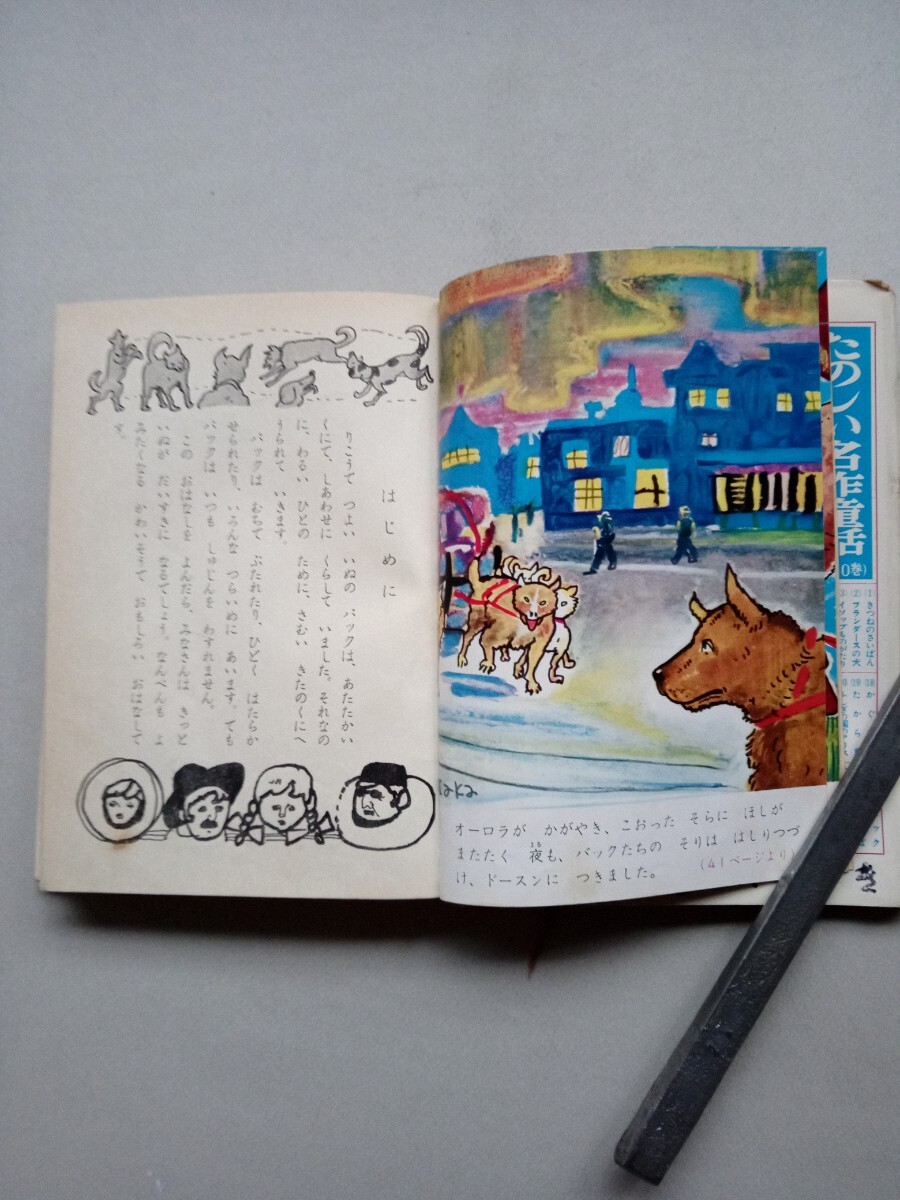 はじめに
りこうで つよい いぬの バックは、あたたかい
くにで、しあわせに くらして いました。それなの
に、わるい ひとの ために、さむい きたのくにへ
うられて いきます。
バックは むちで ぶたれたり、ひどく はたらか
せられたり、いろんな つらいめに あいます。でも
バックは いつも しゅじんを わすれません。
この おはなしを よんだら、みなさんは きっと
いぬが だいすきに なるでしょう。なんべんも よ
みたくなる かわいそうで おもしろい おはなしで
す。
オーロラが かがやき、こおった そらに ほしが
またたく 夜も、バックたちの そりは はしりつづ
よる
け、ドースンに つきました。
(41ページより)
たのしい名作童話
0巻)
⑴きつねのさいばん
⑵フランダースの犬
⑶イソップものがたり